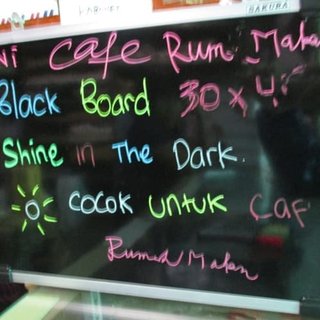 SAKURA
Cafe Rum
Black Board 30 x
Shine in The Dark.
cocok untuk Caf
Rumah Makan